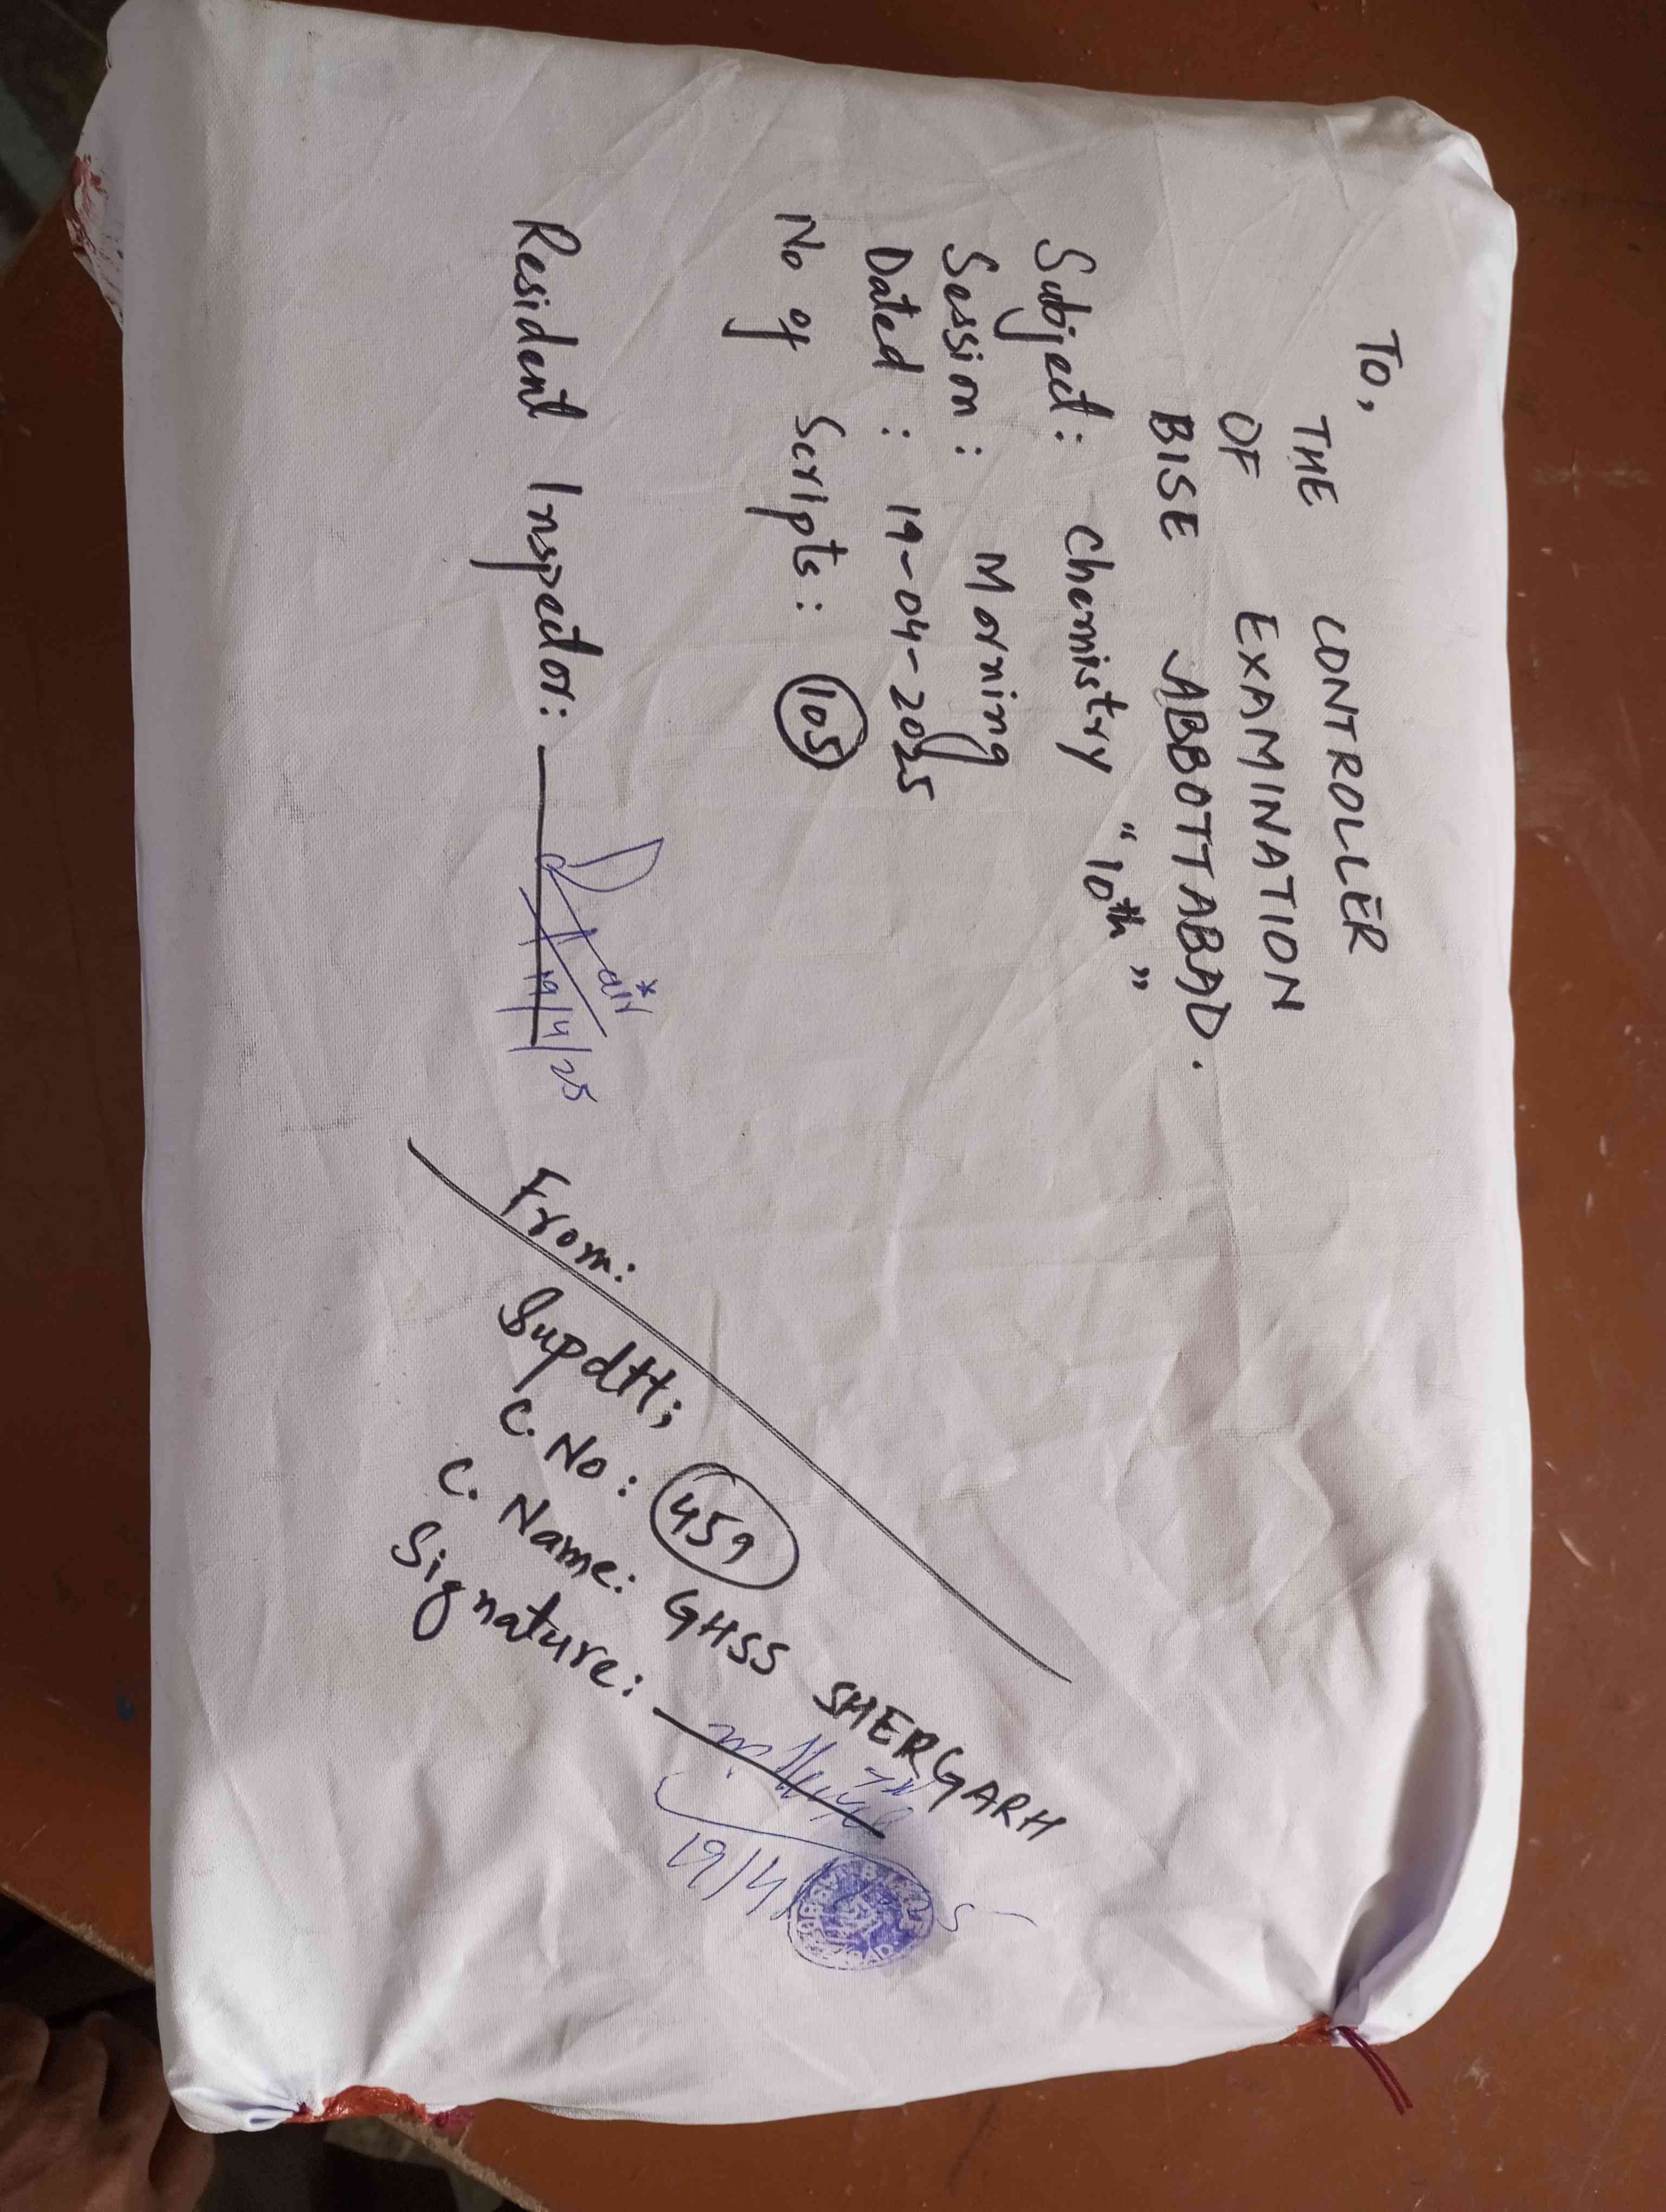 To,
THE CONTROLLER
OF EXAMINATION
BISE ABBOTTABAD.
Subject: Chemistry "10th"
Session: Morning
Dated: 19-04-2025
No of Scripts: 105
Resident Inspector:
19/4/25
From:
Supdtt;
C. No: 459
C. Name: GHSS SHERGARH
Signature:
19/4